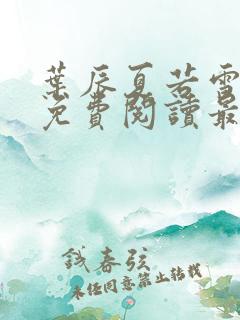 葉辰夏若雪
免費閱讀最
錢春弦
未經同意禁止轉載